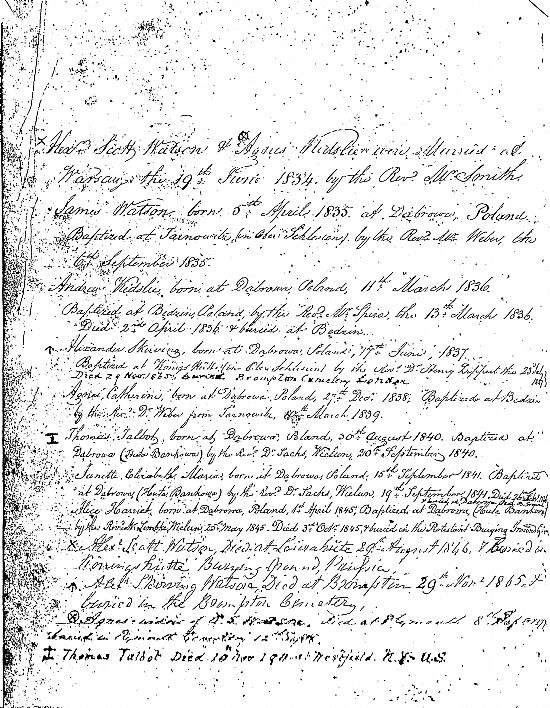 Alexr Scott Watson & Agnes were Married at
Warsaw the 19th June 1834. by the Revd Mr Smith.
James Watson, born 5th April 1835. at Dabrowa, Poland.
Baptized at Tarnowitz, (in Ober Schlesien) by the Revd Mr Weber, the
6th September 1835.
Andrew born at Dabrowa, Poland, 11th March 1836.
Baptized at Bedzin, Poland, by the Revd Mr the 13th March 1836.
Died 2nd April 1836 & buried at Bedzin.
Alexander Skirving, born at Dabrowa, Poland, 17th June, 1837.
Baptized at (in Ober Schlesien) by the Revd Dr the
Died 29 Nov 1865. Buried Brompton Cemetery London
Agnes Catherine, born at Dabrowa, Poland, 27th Decr 1838. Baptized at Bedzin
by the Revd Dr Weber from Tarnowitz, March 1839.
I Thomas Talbot, born at Dabrowa, Poland, 30th August 1840. Baptized at
Dabrowa (Huta Bankowa) by the Revd Dr Sachs, Wielun, 20th September 1840.
Janette Elizabeth Maria, born at Dabrowa, Poland, 15th September 1841. Baptized
at Dabrowa (Huta Bankowa) by the Revd Dr Sachs, Wielun, 19th September 1841. Died
Alice Harriet, born at Dabrowa, Poland, 1st April 1845, Baptized at Dabrowa, (Huta Bankowa)
by the Revd Wielun, 25th May 1845. Died 3rd Octr 1845, & buried in the Burying Ground
Scott Watson, Died at 29th August 1846. & Buried in
Burying Ground, Prussia.
Alexr Skirving Watson Died at Brompton 29th Novr 1865 &
buried in the Brompton Cemetery.
Agnes widow of A. S. Watson. Died at Plymouth 8th Sept
buried in Plymouth Cemetery 12th Sept.
I Thomas Talbot Died 10 Nov at Westfield. N.J. U.S.